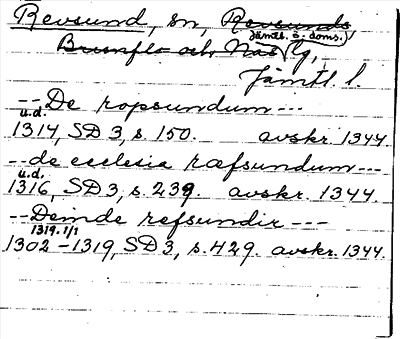 Revsund, sn, Revsunds
Jämtl. ö. doms.
Brunflo och Näs lg,
Jämtl. l.
-- De ropsundum ---
u.d.
1314, SD 3, s. 150. avskr. 1344.
-- de ecclesia ræfsundum ---
u.d.
1316, SD 3, s. 239. avskr. 1344.
-- Deinde refsundir ---
1319. 1/1
1302-1319, SD 3, s. 429. avskr. 1344.